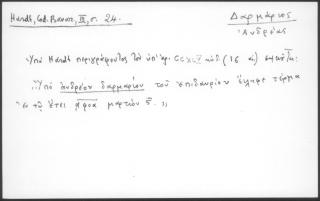 Hardt, Cod. Bavar., III, σ. 24.
Δαρμάριος
Ἀνδρέας
Ὑπὸ Hardt περιγράφοντος τὸν ὑπ' ἀρ. CCXCV κώδ. (16 αἰ)
Ὑπὸ ἀνδρέου δαρμαρίου τοῦ ἐπιδαυρίου εἴληφε τέρμα
ἐν τῷ ἔτει ͵αφοα μαρτίου